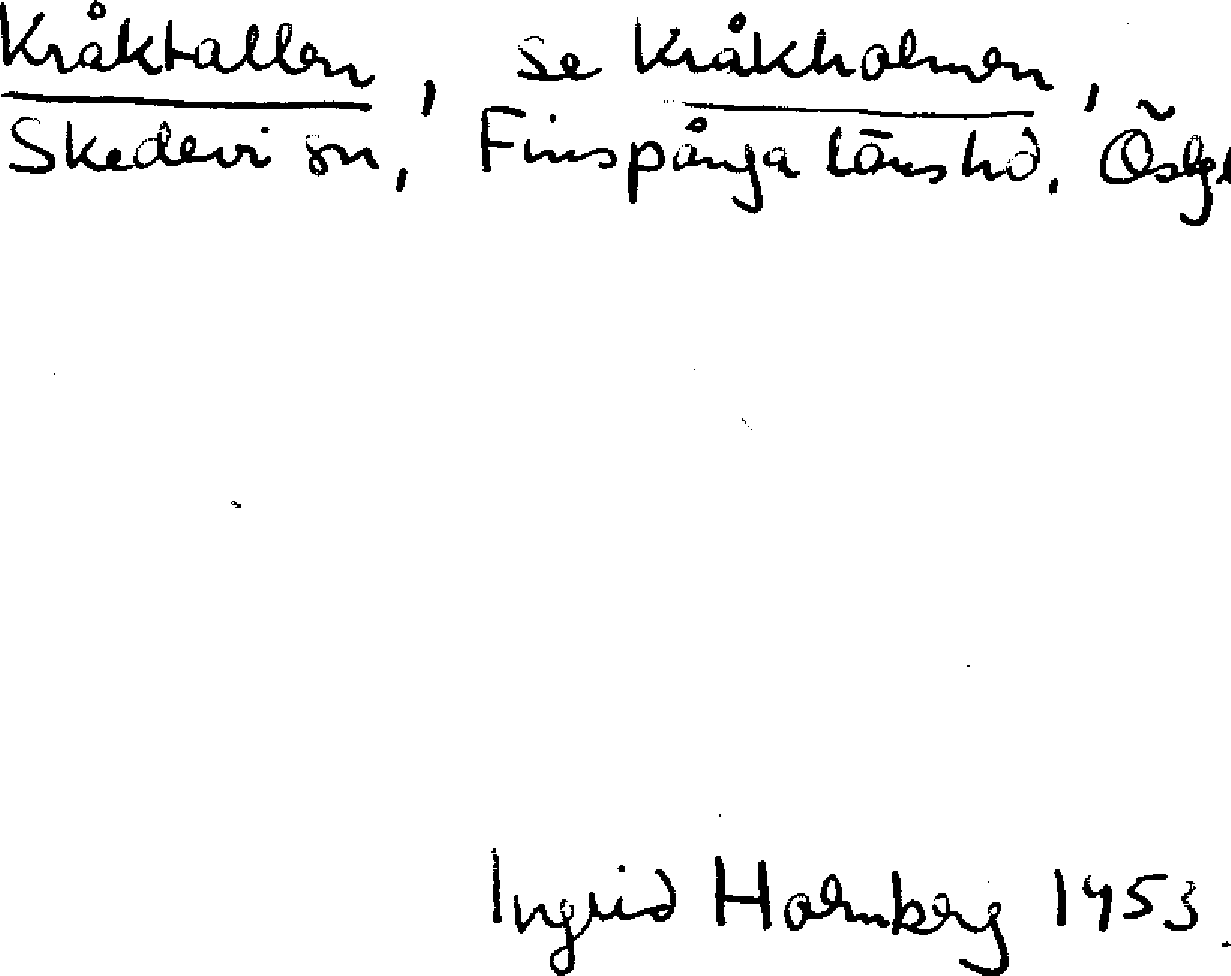 Kråktallen, se Kråkholmen,
Skedevi sn, Finspånga läns hd, Östg
Ingrid Holmberg 1953.